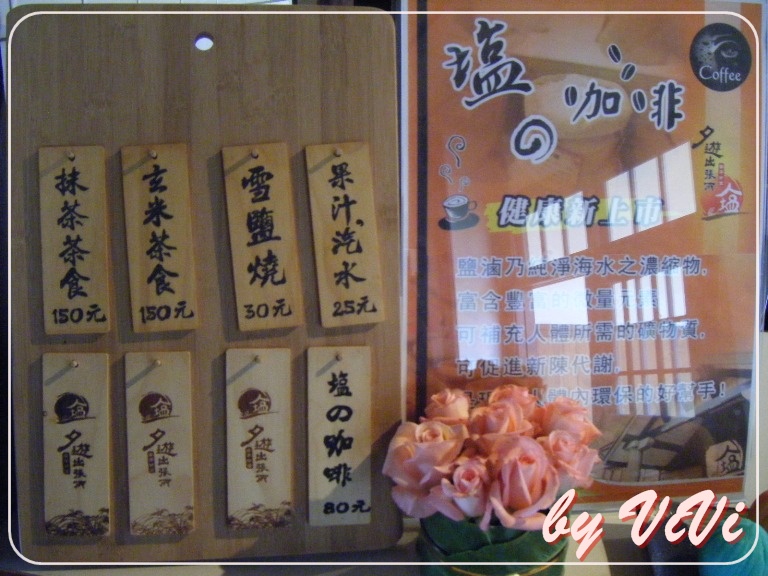 抹茶茶食
150元
玄米茶食
150元
雪鹽燒
30元
果汁、汽水
25元
塩
夕遊出張所
塩
夕遊出張所
塩
夕遊出張所
塩の咖啡
80元
塩の咖啡
Coffee
夕遊出張所
塩
健康新上市
鹽滷乃純淨海水之濃縮物,
富含豐富的微量元素
可補充人體所需的礦物質,
可促進新陳代謝,
人體內環保的好幫手!
塩
by ViVi